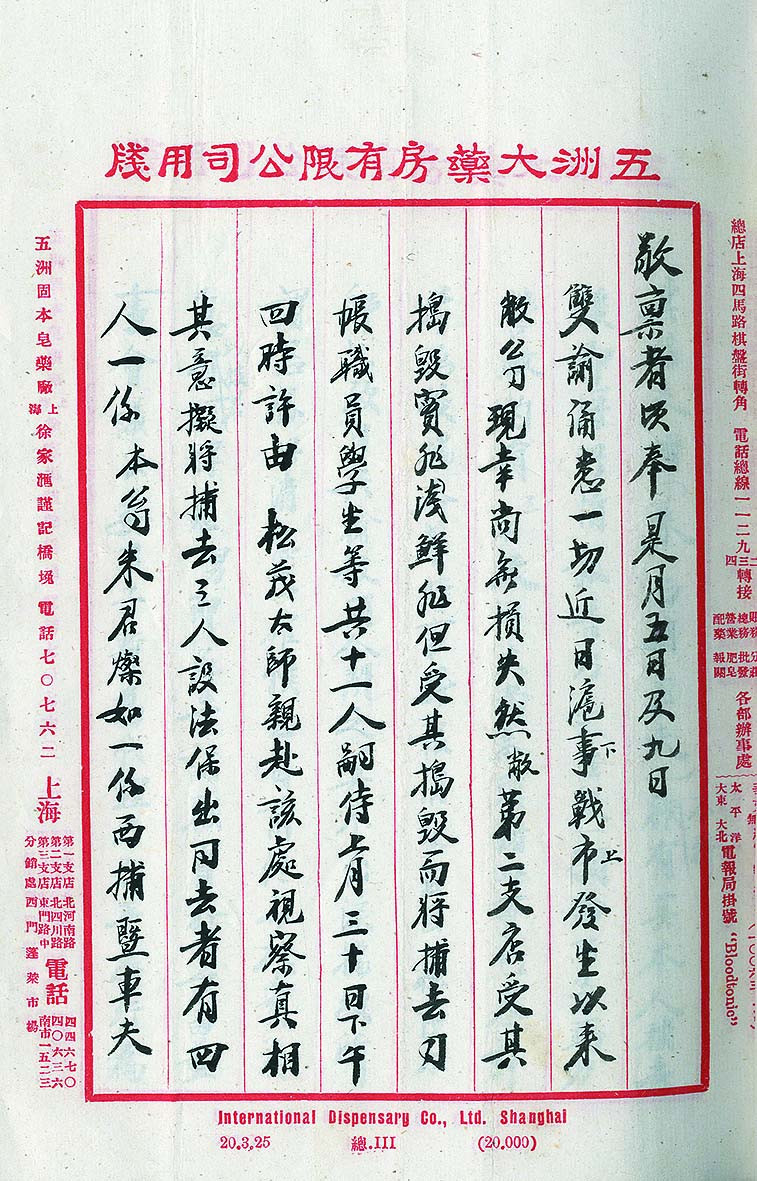 五洲大藥房有限公司用牋
總店上海四馬路棋盤街轉角　電話總線一一二九三四轉接
各部辦事處
太平洋
大東　大北
電報局掛號 "Bloodtonic"
敬稟者頃奉是月五日及九日
雙諭俑悉一切近日滬事下戰市上發生以來
敝公司現幸尚無損失然敝第二支店受其
搗毀實非淺鮮非但受其搗毀而將捕去刁
帳職員學生等共十一人嗣待上月三十日下午
四時許由　松茂太師親赴該處視察真相
其意擬將捕去之人設法保出同去者有四
人一係　本公司朱君燦如一係西捕暨車夫
五洲固本皂藥廠　上海　徐家滙謹記橋堍　電話七〇七六二
上海
第一支店　北河南路
第二支店　北四川路
第三支店　東門路中
分銷處　西門蓬萊市場
電話
四四六七〇
四〇六三六
南市一五二三
International Dispensary Co., Ltd. Shanghai
20.3.25　總.III　(20.000)